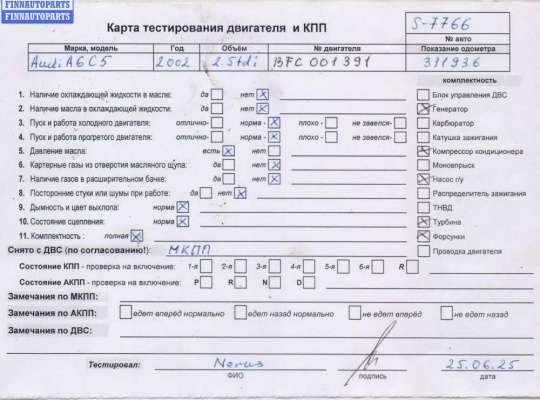 FINNAUTOPARTS
FINNAUTOPARTS
Карта тестирования двигателя и КПП
S-7766
№ авто
Марка, модель Год Объём № двигателя Показание одометра
Audi A6C5 2002 2.5tdi BFC 001391 311936
комплектность
1. Наличие охлаждающей жидкости в масле: да нет Блок управления ДВС
2. Наличие масла в охлаждающей жидкости: да нет Генератор
3. Пуск и работа холодного двигателя: отлично- норма - плохо - не завелся- Карбюратор
4. Пуск и работа прогретого двигателя: отлично- норма - плохо - не завелся- Катушка зажигания
5. Давление масла: есть нет Компрессор кондиционера
6. Картерные газы из отверстия масляного щупа: да нет Моновпрыск
7. Наличие газов в расширительном бачке: да нет Насос г/у
8. Посторонние стуки или шумы при работе: да нет Распределитель зажигания
9. Дымность и цвет выхлопа: норма ТНВД
10. Состояние сцепления: норма Турбина
11. Комплектность : полная Форсунки
Снято с ДВС (по согласованию!): МКПП Проводка двигателя
Состояние КПП - проверка на включение: 1-я 2-я 3-я 4-я 5-я 6-я R
Состояние АКПП - проверка на включение: P R N D
Замечания по МКПП:
Замечания по АКПП: едет вперёд нормально едет назад нормально не едет вперед не едет назад
Замечания по ДВС:
Тестировал: 25.06.25
ФИО подпись дата